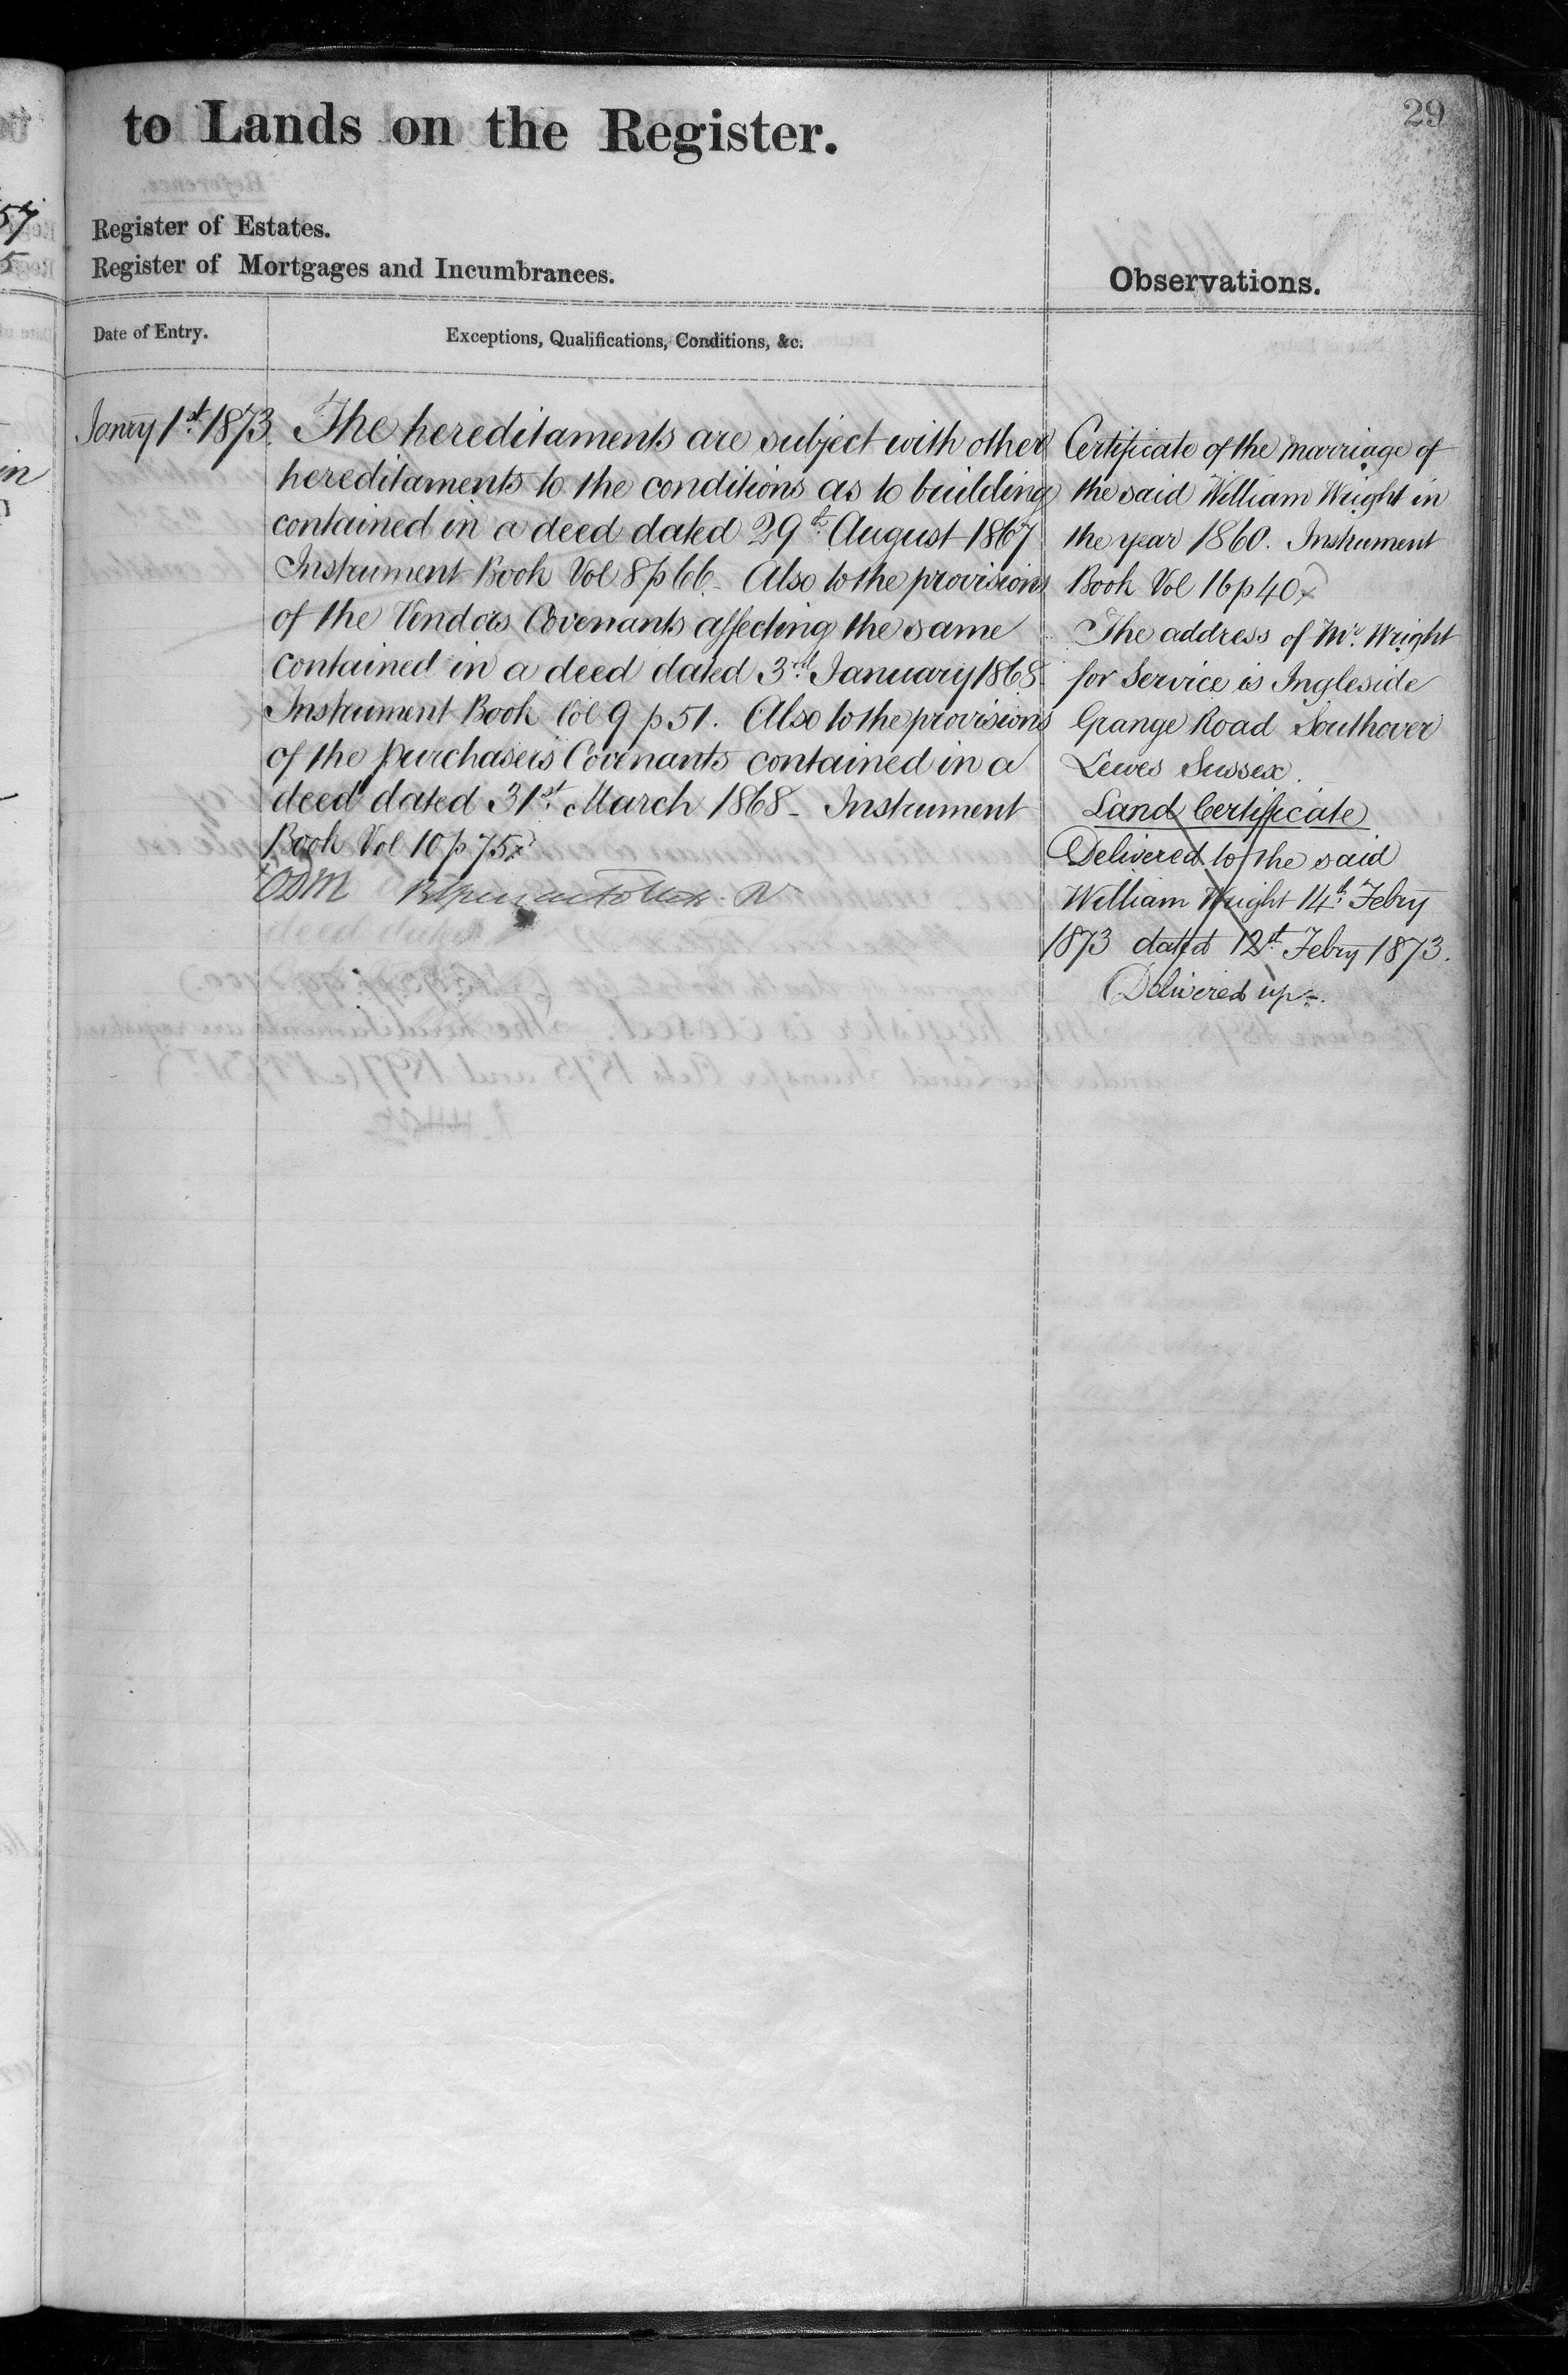 29
to Lands on the Register.
Register of Estates.
Register of Mortgages and Incumbrances.
Observations.
Date of Entry.
Exceptions, Qualifications, Conditions, &c.
Janry 1st 1873
The hereditaments are subject with other
hereditaments to the conditions as to building
contained in a deed dated 29th August 1867
Instrument Book Vol 8 p 66 - Also to the provisions
of the Vendors Covenants affecting the same
contained in a deed dated 3rd January 1868.
Instrument Book Vol 9 p 51. Also to the provisions
of the purchaser's Covenants contained in a
deed dated 31st March 1868 - Instrument
Book Vol 10 p 75 x
ODM
Certificate of the marriage of
the said William Wright in
the year 1860. Instrument
Book Vol 16 p 40 x
The address of Mr. Wright
for Service is Ingleside
Grange Road Southover
Lewes Sussex.
Land Certificate
Delivered to the said
William Wright 14th Febry
1873 dated 12th Febry 1873.
Delivered up -.